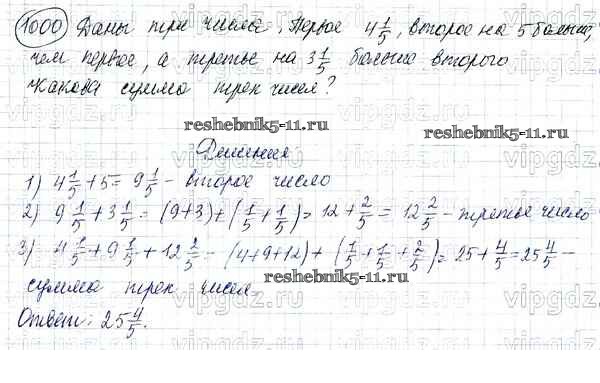 1000) Даны три числа. Первое 4 1/5, второе на 5 больше,
чем первое, а третье на 3 1/5 больше второго
Какова сумма трех чисел?
reshebnik5-11.ru
reshebnik5-11.ru
Решение
1) 4 1/5 + 5 = 9 1/5 - второе число
2) 9 1/5 + 3 1/5 = (9+3) + (1/5 + 1/5) = 12 + 2/5 = 12 2/5 - третье число
3) 4 1/5 + 9 1/5 + 12 2/5 = (4+9+12) + (1/5 + 1/5 + 2/5) = 25 + 4/5 = 25 4/5 -
reshebnik5-11.ru
сумма трех чисел.
Ответ: 25 4/5.